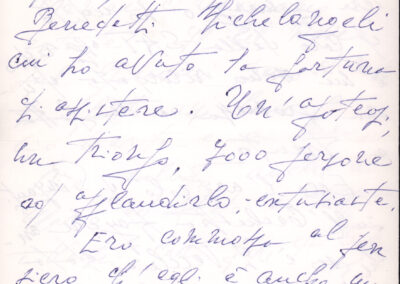 Benedetti Michelangeli
cui ho avuto la fortuna
di assistere. Un'apoteosi,
un trionfo, 7000 persone
ad applaudirlo, entusiaste.
Ero commossa al pen
siero ch'egli è anche un